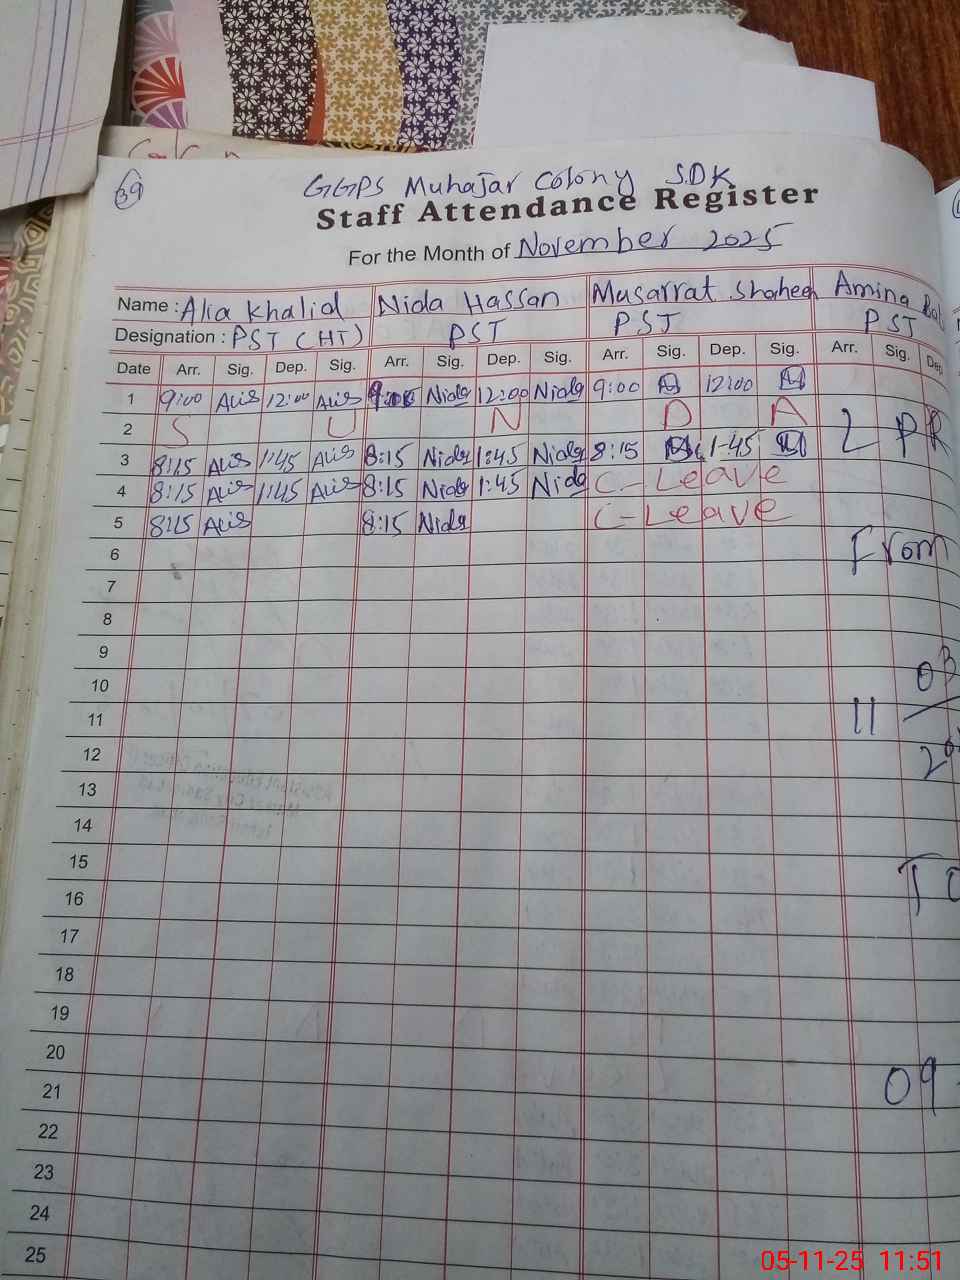 39
GGPS Muhajar Colony SDK
Staff Attendance Register
For the Month of November 2025
Name : Alia Khalid Nida Hassan Musarrat Shaheen Amina
Designation : PST (HT) PST PST PST
Date Arr. Sig. Dep. Sig. Arr. Sig. Dep. Sig. Arr. Sig. Dep. Sig. Arr. Sig. Dep.
1 9:00 Alia 12:00 Alia 9:00 Nida 12:00 Nida 9:00 12:00
2 S U N D A L PR
3 8:15 Alia 1:45 Alia 8:15 Nida 1:45 Nida 8:15 1:45
4 8:15 Alia 1:45 Alia 8:15 Nida 1:45 Nida C-Leave
5 8:15 Alia 8:15 Nida C-Leave
6 From
7
8
9
10 03
11 11
12
13
14
15 TO
16
17
18
19
20
21 09
22
23
24
25
05-11-25 11:51